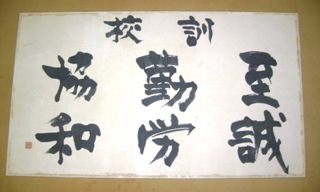 校訓
至誠
勤労
協和